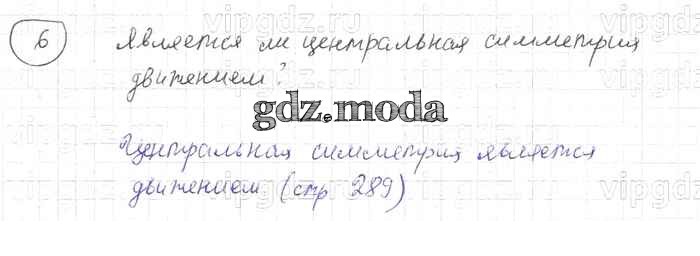 6 Является ли центральная симметрия
движением?
gdz.moda
Центральная симметрия является
движением (стр 289)
vipgdz